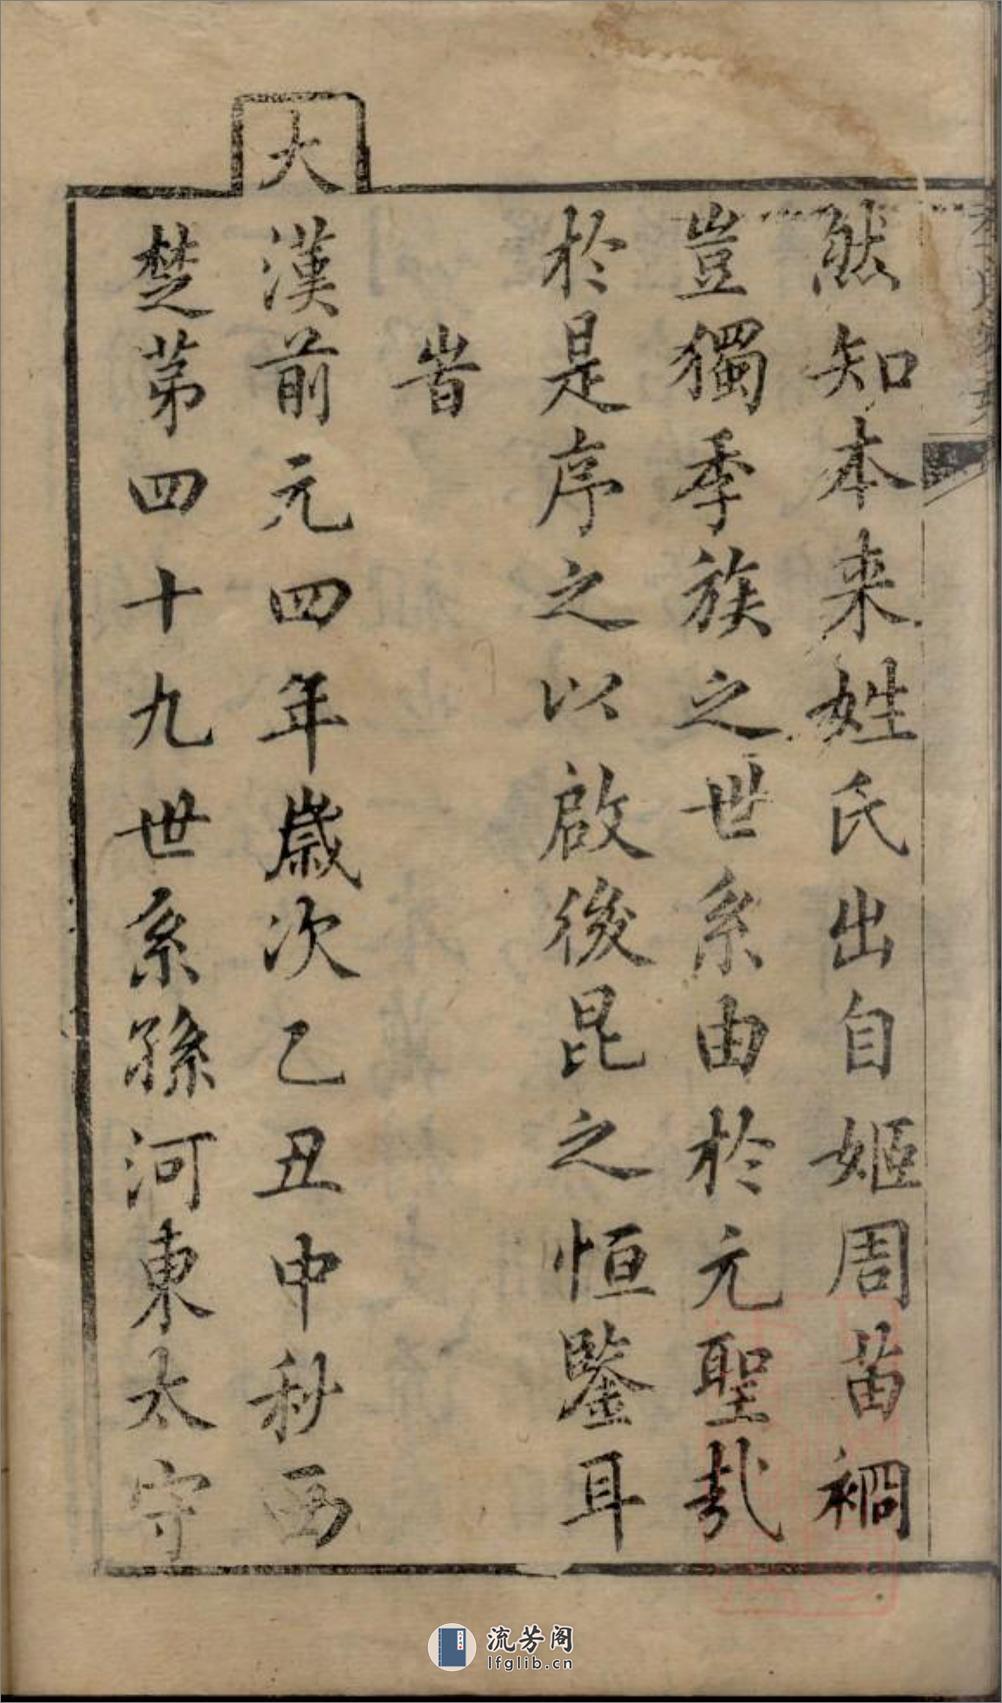 然知本来姓氏出自姬周苗裔
豈獨季族之世系由於元聖哉
於是序之以啟後昆之恒鑒耳
旹
大漢前元四年歲次乙丑中秋西
楚第四十九世系孫河東太守
流芳阁
lfglib.cn